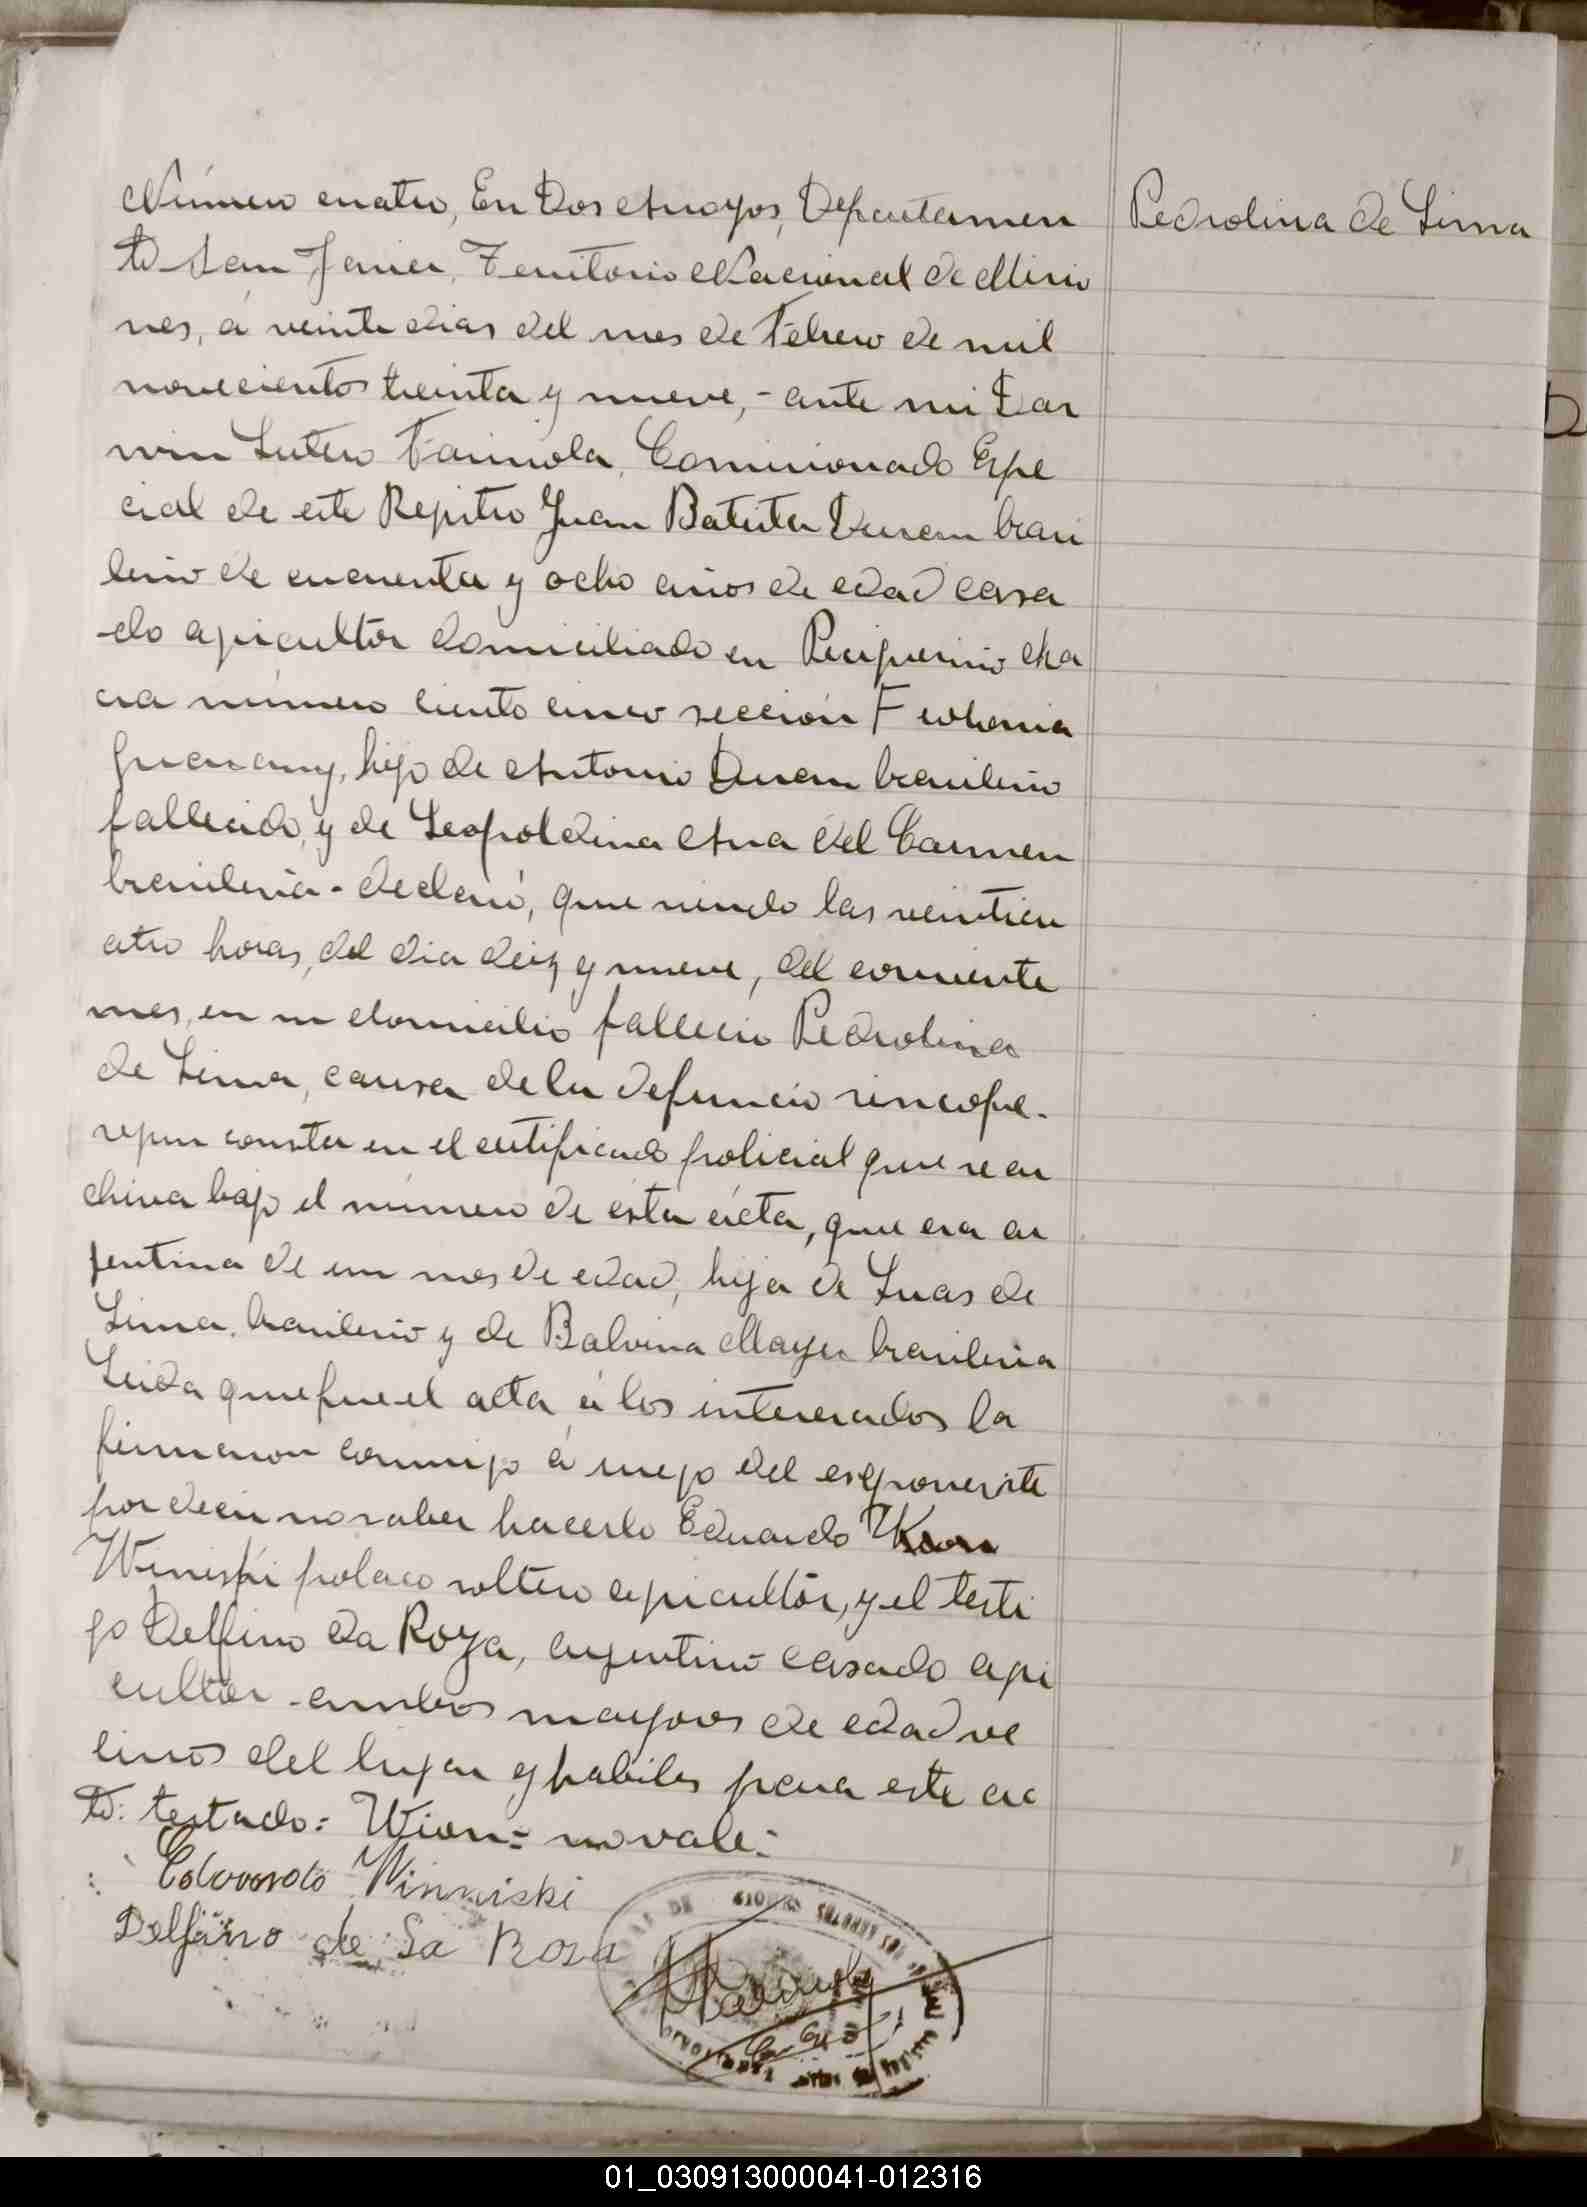 Número cuatro, En Dos Arroyos, Departamen
to San Javier, Territorio Nacional de Misio
nes, á veinte dias del mes de Febrero de mil
novecientos treinta y nueve,- ante mi Dar
win Lutero Farinola, Comisionado Espe
cial de este Registro Juan Batista Duram brasi
lero de cincuenta y ocho años de edad casa
do agricultor domiciliado en Pindaiti cha
cra número ciento cinco sección F colonia
guarany, hijo de Antonio Duram brasilero
fallecido, y de Leopoldina Ana del Carmen
brasilera - declaró, que siendo las veinticu
atro horas, del dia diez y nueve, del corriente
mes, en su domicilio fallecio Pedrolina
de Lima, causa de la defuncio sincope.
segun consta en el certificado policial que se ar
chiva bajo el número de ésta ácta, que era ar
gentina de un mes de edad, hija de Luas de
Lima, brasilero y de Balvina Mayer brasilera
Leida que fue el acta á los interesados la
firmaron conmigo á ruego del esponente
por decir no saber hacerlo Eduardo
Winiski polaco soltero agricultor, y el testi
go Delfino da Roza, argentino casado agri
cultor - ambos mayores de edad ve
cinos del lugar y habiles para este ac
to: testado: Wion= no vale:
Edovardo Winniski
Delfino de Sa Rosa
Pedrolina de Lima
01_030913000041-012316